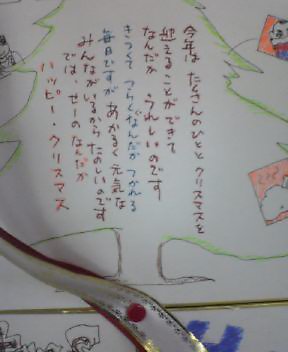 今年は たくさんのひとと クリスマスを
迎えることができて
なんだか うれしいのです
きつくて つらくなんだか つかれる
毎日ですが あかるく元気な
みんながいるから たのしいのです
では、せーの なんだか
ハッピー・クリスマス